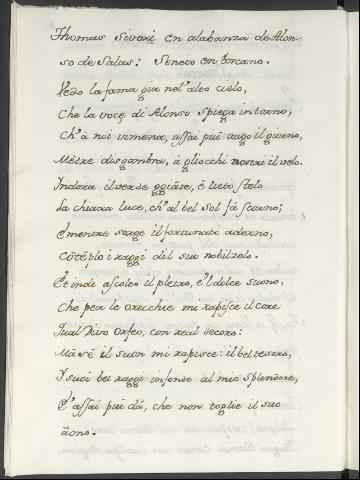 Thomas Sivori en alabanza de Alon-
so de Salas: Soneto en torcano.
Vedo la fama gir nel'alto cielo,
Che la voce di Alonso spiega intorno,
Ch'à noi vimena, assai più vago il giorno,
Mẽtre disgombra, à gliocchi nostri il velo.
Indora il verde e lieto stelo
La chiara luce, ch'al bel Sol fá scorno;
E mentre sorge il fortunato adorno,
Cõtẽplo i raggi dil suo nobilzelo.
Et indi ascolto il pletro, e'l dolce suono,
Che per le orecchie mi rapisce il core
Qual Divo Orfeo, con real decoro:
Má sẽ il suon mi rapisce: il bel tesoro,
I suoi bei raggi infonde al mio splendore,
E'assai più dá, che non toglie il suo